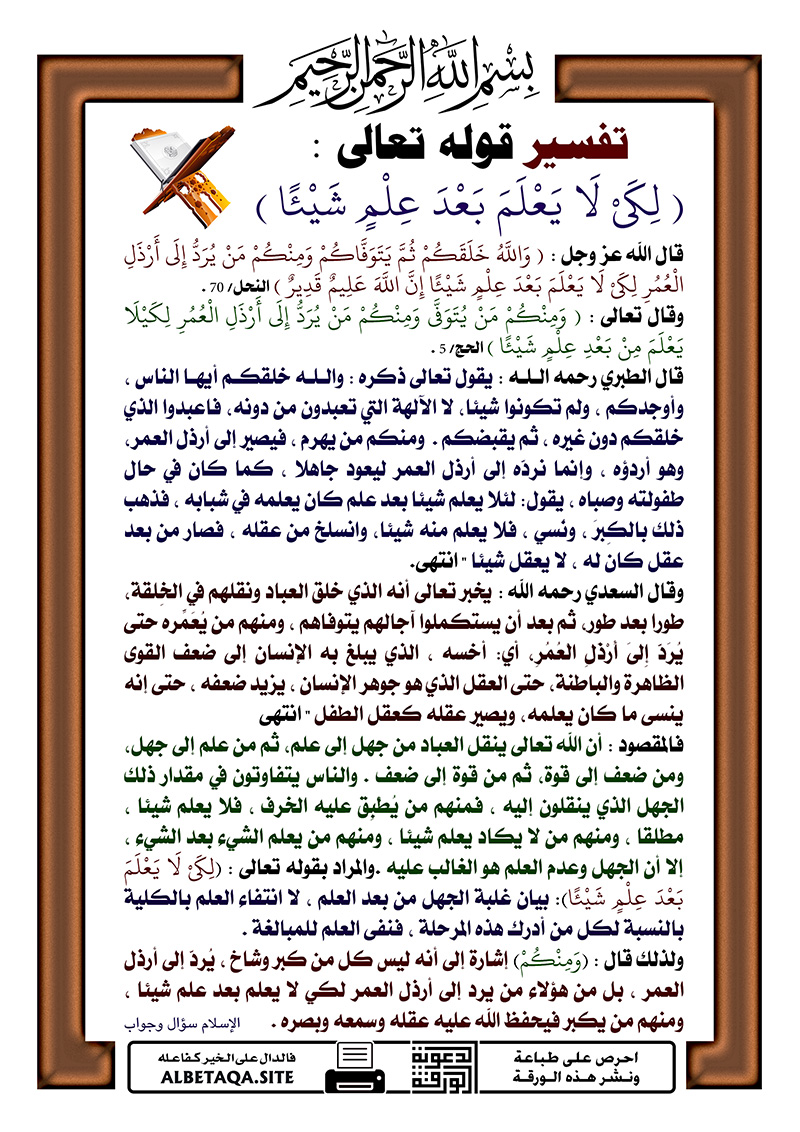 بِسْمِ اللَّهِ الرَّحْمَنِ الرَّحِيمِ
تفسير قوله تعالى :
( لِكَيْ لَا يَعْلَمَ بَعْدَ عِلْمٍ شَيْئًا )
قال الله عز وجل : ( وَاللَّهُ خَلَقَكُمْ ثُمَّ يَتَوَفَّاكُمْ وَمِنْكُمْ مَنْ يُرَدُّ إِلَى أَرْذَلِ
الْعُمُرِ لِكَيْ لَا يَعْلَمَ بَعْدَ عِلْمٍ شَيْئًا إِنَّ اللَّهَ عَلِيمٌ قَدِيرٌ ) النحل/ 70 .
وقال تعالى : ( وَمِنْكُمْ مَنْ يُتَوَفَّى وَمِنْكُمْ مَنْ يُرَدُّ إِلَى أَرْذَلِ الْعُمُرِ لِكَيْلَا
يَعْلَمَ مِنْ بَعْدِ عِلْمٍ شَيْئًا ) الحج/ 5 .
قال الطبري رحمه الله : يقول تعالى ذكره : والله خلقكم أيها الناس ،
وأوجدكم ، ولم تكونوا شيئا، لا الآلهة التي تعبدون من دونه، فاعبدوا الذي
خلقكم دون غيره ، ثم يقبضكم . ومنكم من يهرم ، فيصير إلى أرذل العمر،
وهو أردؤه ، وإنما نردّه إلى أرذل العمر ليعود جاهلا ، كما كان في حال
طفولته وصباه ، يقول: لئلا يعلم شيئا بعد علم كان يعلمه في شبابه ، فذهب
ذلك بالكِبَر ، ونسي ، فلا يعلم منه شيئا، وانسلخ من عقله ، فصار من بعد
عقل كان له ، لا يعقل شيئا " انتهى.
وقال السعدي رحمه الله : يخبر تعالى أنه الذي خلق العباد ونقلهم في الخِلقة،
طورا بعد طور، ثم بعد أن يستكملوا آجالهم يتوفاهم ، ومنهم من يُعَمِّره حتى
يُرَدّ إِلَىَ أَرْذَلِ العُمُرِ، أي: أخسه ، الذي يبلغ به الإنسان إلى ضعف القوى
الظاهرة والباطنة، حتى العقل الذي هو جوهر الإنسان ، يزيد ضعفه ، حتى إنه
ينسى ما كان يعلمه، ويصير عقله كعقل الطفل " انتهى
فالمقصود : أن الله تعالى ينقل العباد من جهل إلى علم، ثم من علم إلى جهل،
ومن ضعف إلى قوة، ثم من قوة إلى ضعف . والناس يتفاوتون في مقدار ذلك
الجهل الذي ينقلون إليه ، فمنهم من يُطبِق عليه الخرف ، فلا يعلم شيئا ،
مطلقا ، ومنهم من لا يكاد يعلم شيئا ، ومنهم من يعلم الشيء بعد الشيء ،
إلا أن الجهل وعدم العلم هو الغالب عليه .والمراد بقوله تعالى : (لِكَيْ لَا يَعْلَمَ
بَعْدَ عِلْمٍ شَيْئًا): بيان غلبة الجهل من بعد العلم ، لا انتفاء العلم بالكلية
بالنسبة لكل من أدرك هذه المرحلة ، فنفى العلم للمبالغة .
ولذلك قال : (وَمِنْكُمْ) إشارة إلى أنه ليس كل من كبر وشاخ ، يُردّ إلى أرذل
العمر ، بل من هؤلاء من يرد إلى أرذل العمر لكي لا يعلم بعد علم شيئا ،
ومنهم من يكبر فيحفظ الله عليه عقله وسمعه وبصره . الإسلام سؤال وجواب
احرص على طباعة
ونشر هذه الورقة
الورقة الدعوية
فالدال على الخير كفاعله
ALBETAQA.SITE